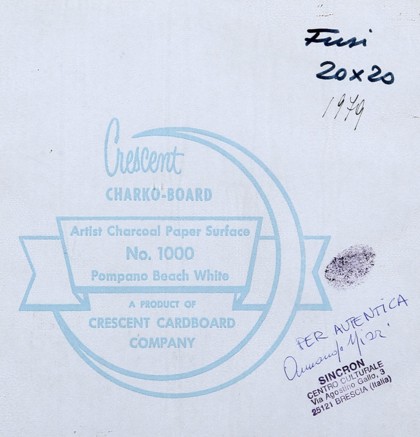 Fusi
20x20
1979
Crescent
CHARKO-BOARD
Artist Charcoal Paper Surface
No. 1000
Pompano Beach White
A PRODUCT OF
CRESCENT CARDBOARD
COMPANY
PER AUTENTICA
SINCRON
CENTRO CULTURALE
Via Agostino Gallo, 3
25121 BRESCIA (Italia)